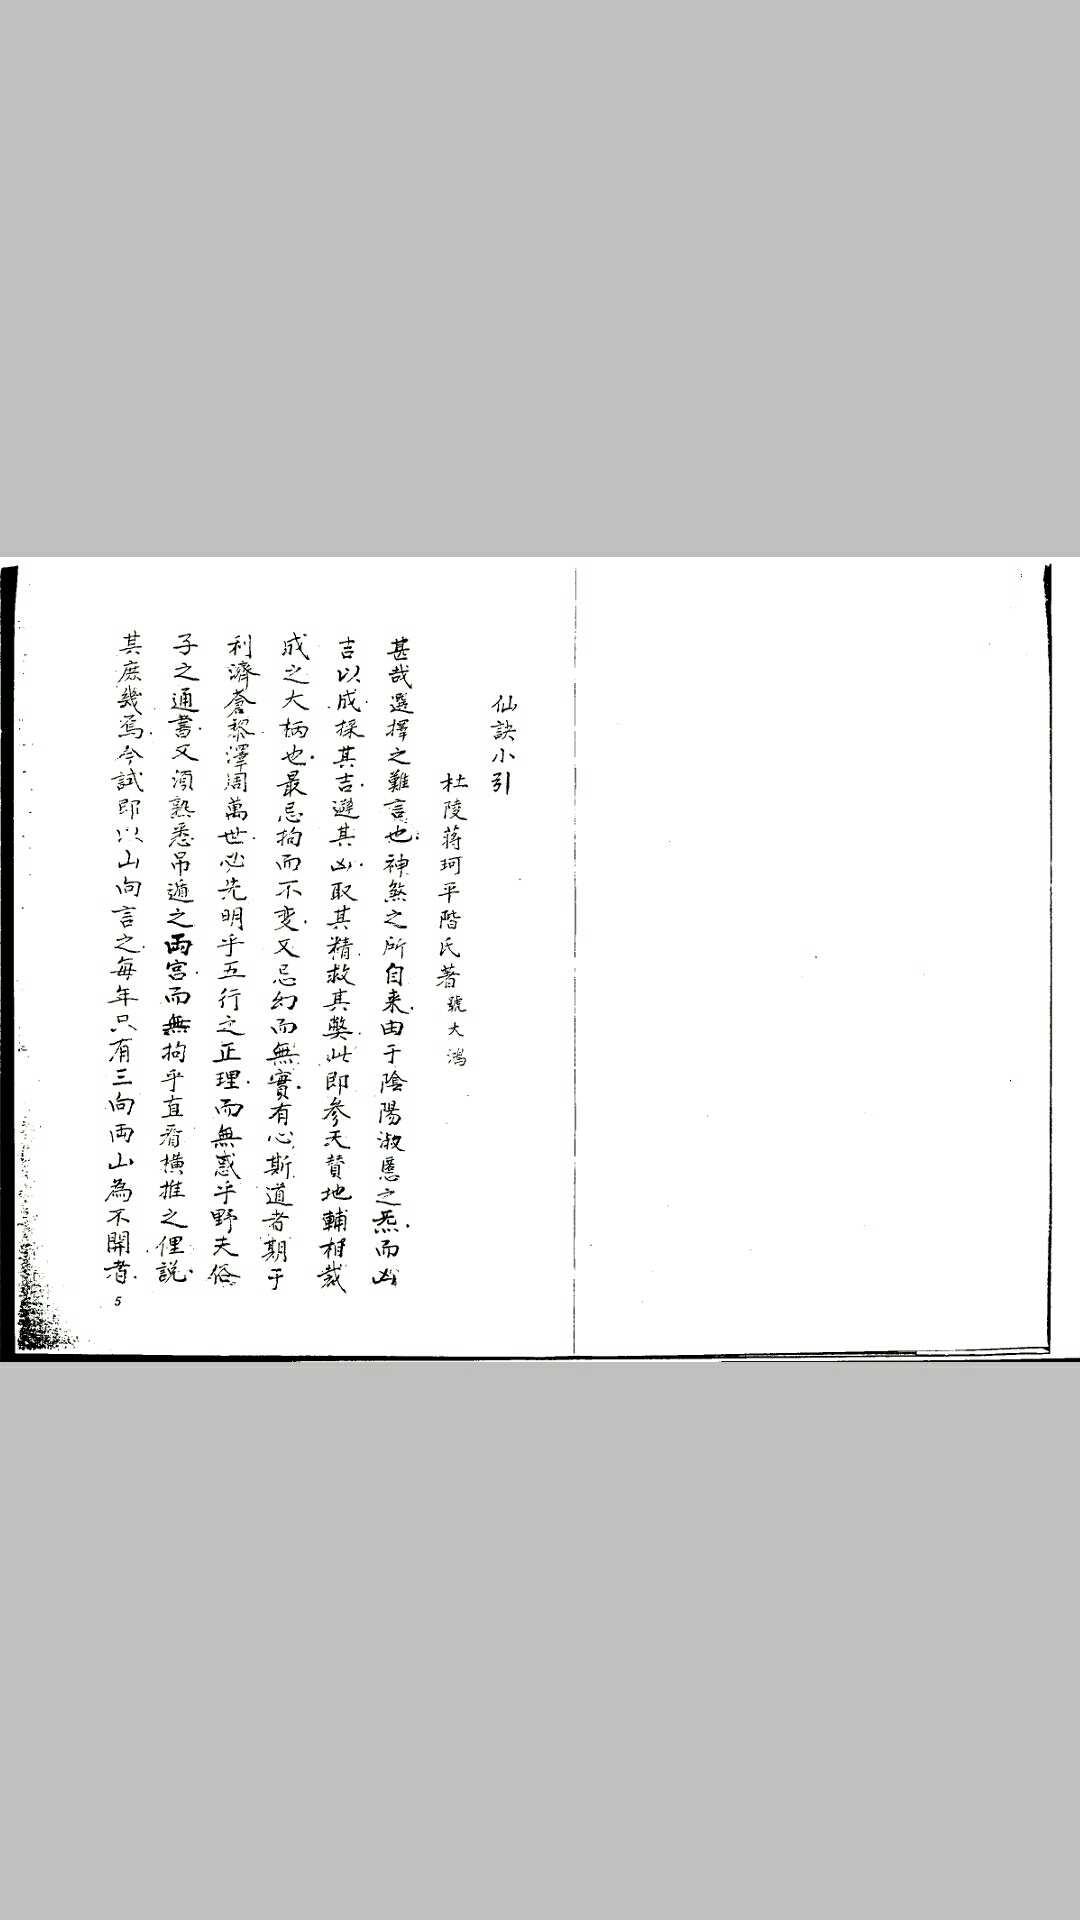 仙訣小引
杜陵蔣珂平階氏著號大鴻
甚哉選擇之難言也.神煞之所自来.由于陰陽淑慝之炁.而凶
吉以成.採其吉.避其凶.取其精.救其獘.此即參天贊地輔相裁
成之大柄也.最忌拘而不变.又忌幻而無實.有心斯道者期于
利濟蒼黎.澤周萬世.必先明乎五行之正理.而無惑乎野夫俗
子之通書.又須熟悉吊遁之両宮.而無拘乎直看橫推之俚説.
其庶幾焉.今試即以山向言之.每年只有三向両山為不開者.
5